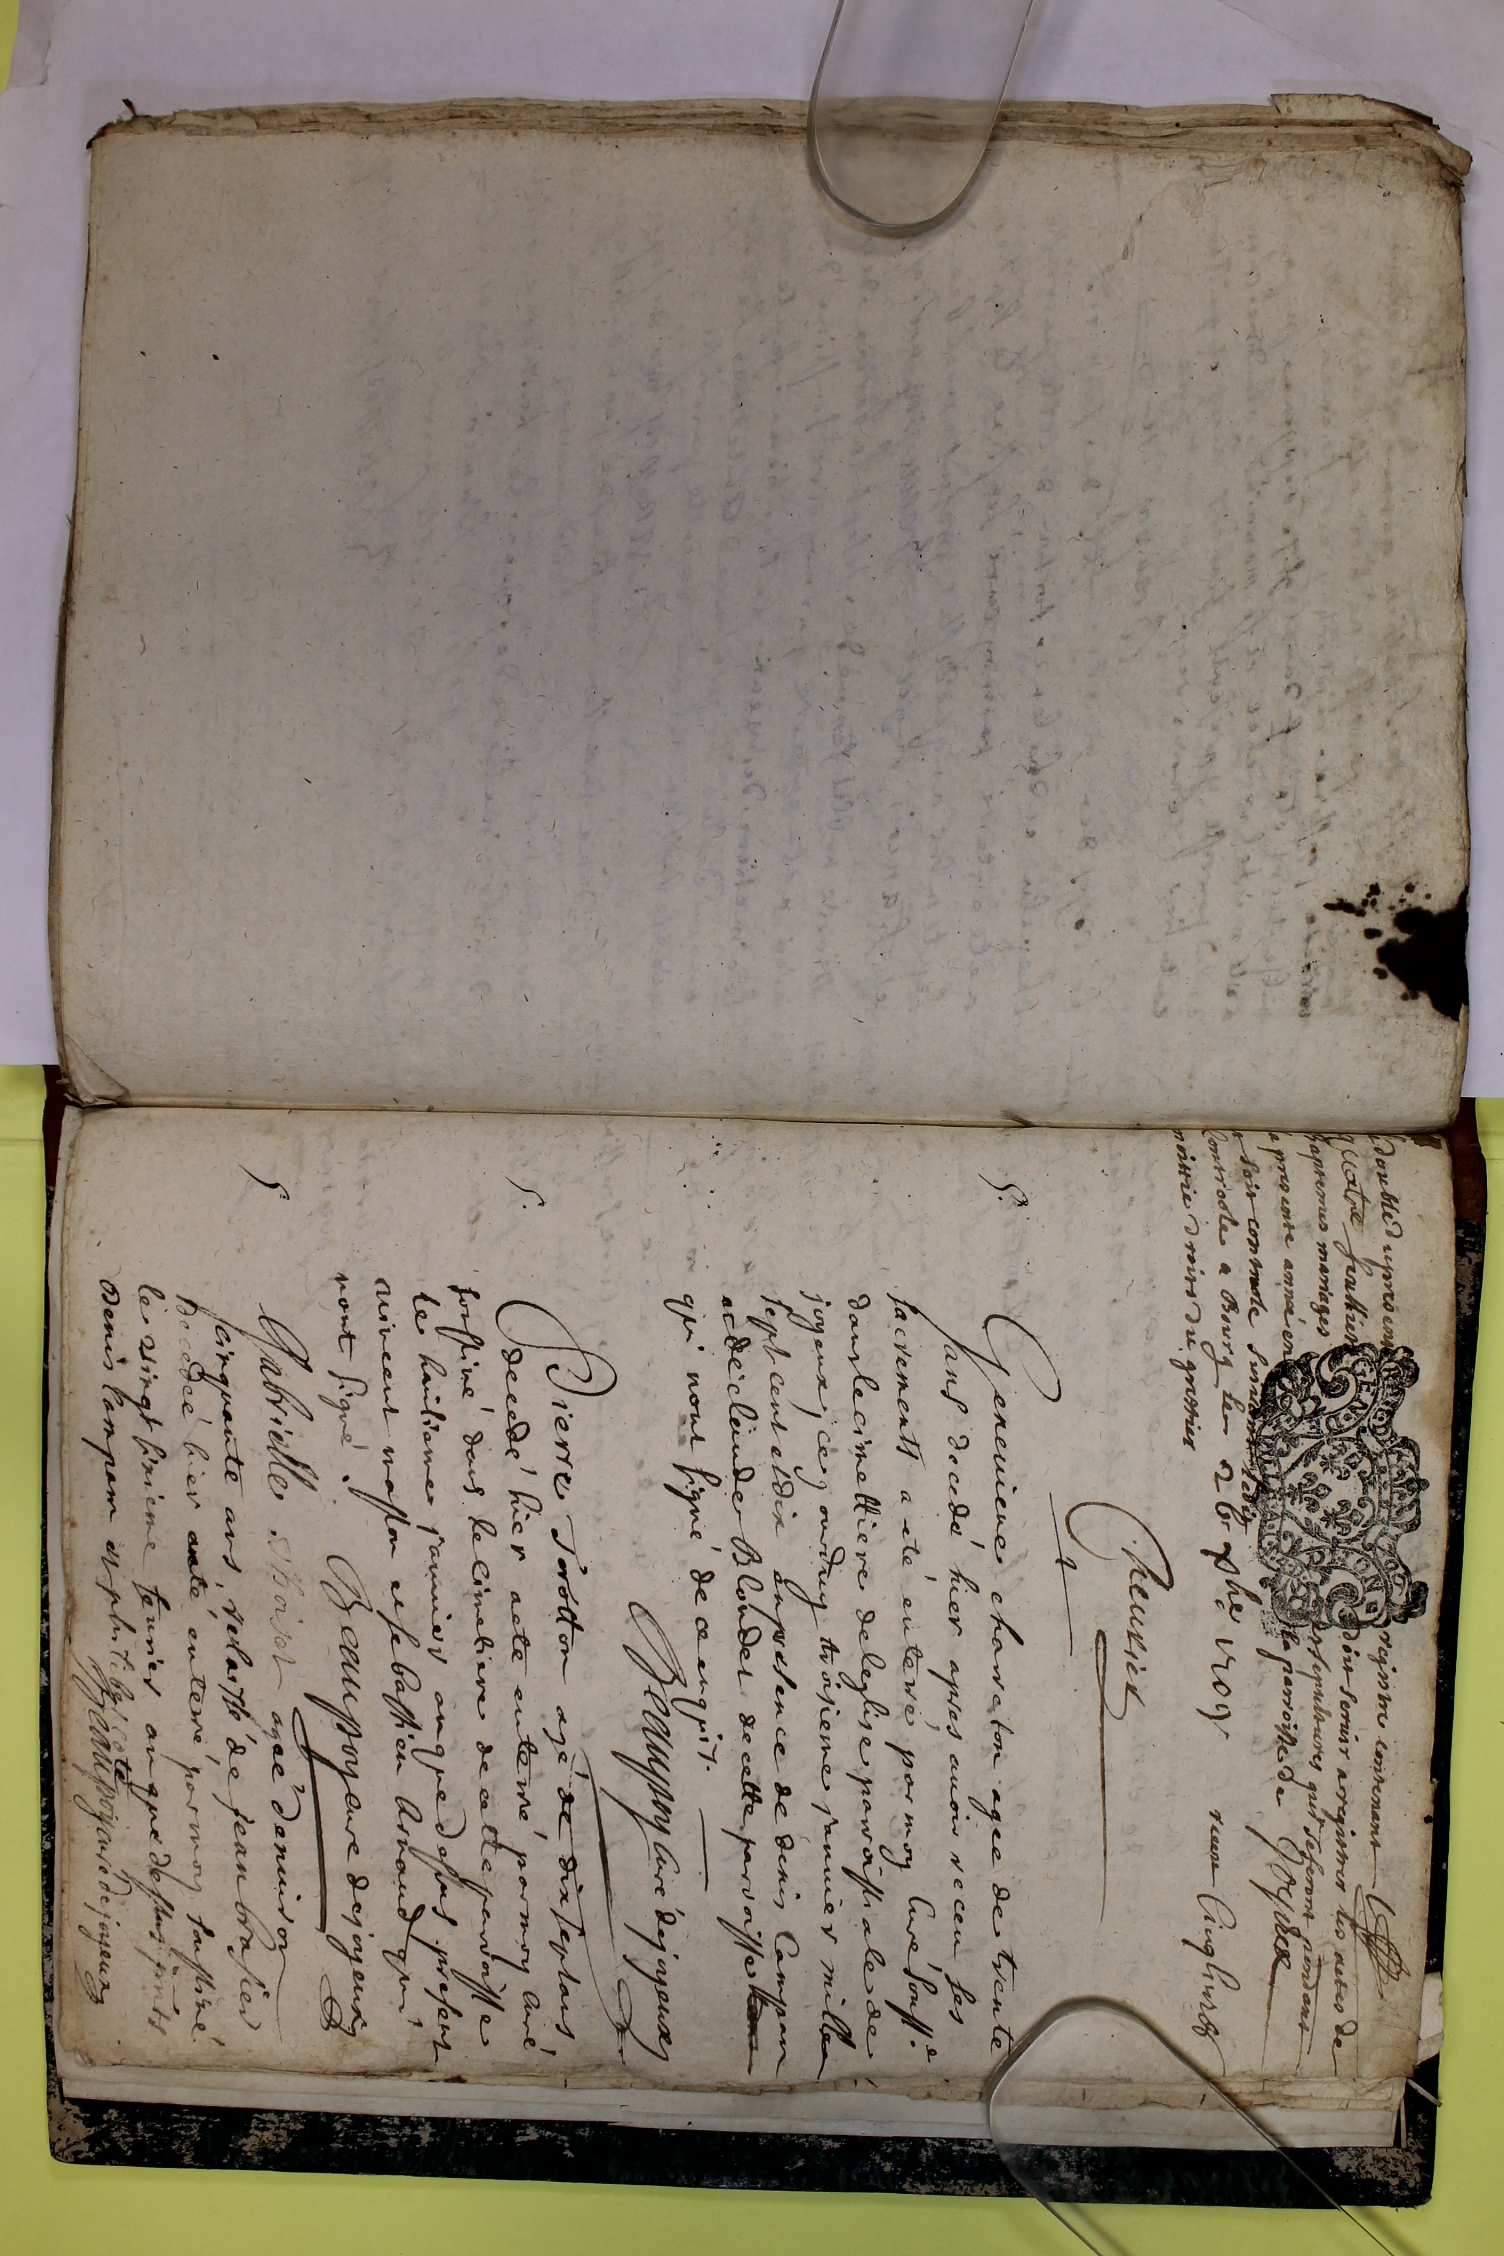 double du present registre contenant
quatre feulliets dix servir a registrer les actes de
baptemes mariages et sepultures qui se feront pendant
la presente année en la parroisse de Joyeux
Controole a Bourg le 26 xbre 1709
moittié droits du greffier
Cheurier
S. Geneuieue chareton agee de trente
ans decedé hier apres auoir receu ses
sacrements a eté enterré par moy Curé souss.é
dans le cimettiere de leglise parroissiale de
joyeux ce jourduy troisieme januier mille
sept cent et dix en presence de denis Campan
et de claude Blondel de cette parroisse
qui n'ont signé de ce enquis.
Beaupoyeure déjoyeux
S. Pierre agé de dix sept ans
decedé hier a eté enterré par moy Curé
soussiné dans le Cimetiere de cette parroisse
le huitieme januier an que dessus present
uincent masson et sebastien Arnaud qui
n'ont signé. Beaupoyeure dejoyeux
S. Gabrielle agée denuiron
cinquante ans, relaissé de jean brasier
decedée hier a eté enterré par moy soussiné
le vingt sixieme feurier an que dessus pnts
denis Campan et phili
Beaupoyeure dejoyeux